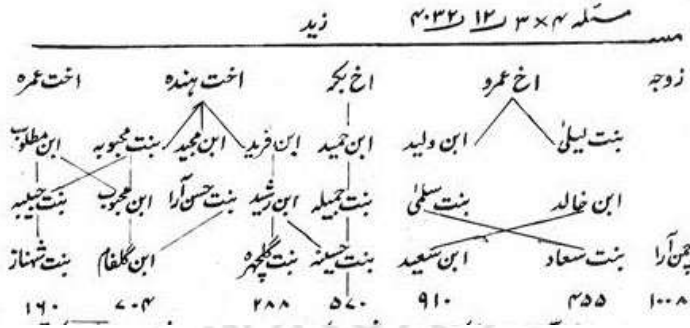 مسئلہ ۴ × ۳ ١٢ ۴۰۳۲ زید
زوجہ اخ عمرو اخ بکر اخت ہندہ اخت عمرہ
بنت لیلیٰ ابن ولید ابن حمید ابن فرید ابن مجید بنت محبوبہ ابن مطلوب
ابن خالد بنت سلمیٰ بنت جمیلہ ابن رشید بنت حسن آرا ابن محبوب بنت حبیبہ
چمن آرا بنت سعاد ابن سعید بنت حسینہ بنت گلچہرہ ابن گلفام بنت شہناز
۱۰۰۸ ۴۵۵ ۹۱۰ ۵۷۰ ۲۸۸ ۷۰۴ ۱۶۰